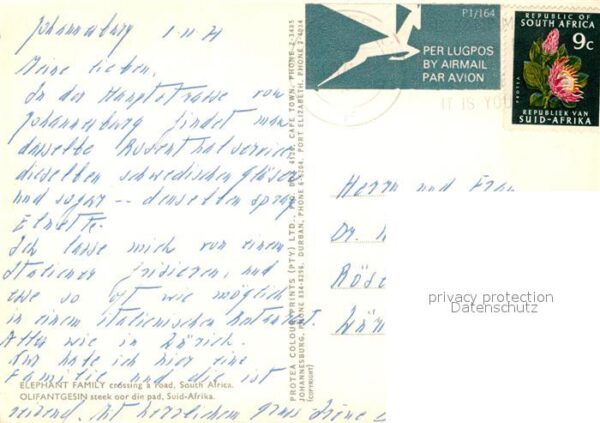 Johannesburg 1.11.71
Meine lieben,
In der Hauptstrasse von
Johannesburg findet man
dasselbe Rosenthalservice
dieselben schwedischen Gläser
und sogar -- denselben
Ich lasse mich von einem
Italiener frisieren, und
esse so oft wie möglich
in einem italienischen Restaurant.
Alles wie in Zürich.
Nur habe ich hier eine
Familie und die ist
reizend. Mit herzlichem Gruss Irène
ELEPHANT FAMILY crossing a road, South Africa.
OLIFANTGESIN steek oor die pad, Suid-Afrika.
PROTEA COLOUR PRINTS (PTY) LTD.,
JOHANNESBURG, PHONE 834-8296, DURBAN, PHONE 6-5204, PORT ELIZABETH, PHONE 2-4034
(COPYRIGHT)
P1/164
PER LUGPOS
BY AIRMAIL
PAR AVION
REPUBLIC OF
SOUTH AFRICA
9c
PROTEA
REPUBLIEK VAN
SUID-AFRIKA
IT IS YOU
Herrn und Frau
Dr.
privacy protection
Datenschutz